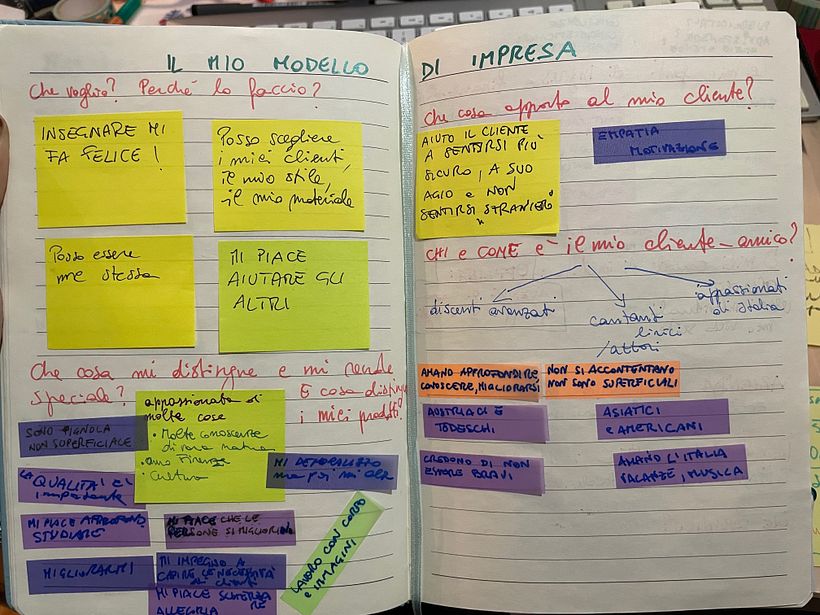 IL MIO MODELLO
Che voglio? Perché lo faccio?
INSEGNARE MI
FA FELICE!
Posso scegliere
i miei clienti,
il mio stile,
il mio materiale
Posso essere
me stessa
MI PIACE
AIUTARE GLI
ALTRI
Che cosa mi distingue e mi rende
speciale?
E cosa distingue
i miei prodotti?
appassionata di
molte cose
• Molte conoscenze
di varia natura
• amo Firenze
• Cultura
SONO PIGNOLA
NON SUPERFICIALE
LA QUALITÀ È
importante
MI PIACE APPROFOND.
STUDIARE
MIGLIORARMI
MI DEMORALIZZO
ma poi mi alzo
MI PIACE CHE LE
PERSONE SI MIGLIORINO
MI IMPEGNO A
CAPIRE LE NECESSITÀ
dei clienti
MI PIACE SCHERZARE
ALLEGRIA
LAVORO CON CORPO
e IMMAGINI
DI IMPRESA
Che cosa apporto al mio cliente?
AIUTO IL CLIENTE
A SENTIRSI PIÙ
SICURO, A SUO
AGIO e NON
SENTIRSI STRANIERO
EMPATIA
MOTIVAZIONE
CHI e COME è il mio cliente-amico?
discenti avanzati
cantanti
lirici
/attori
appassionati
di Italia
AMANO APPROFONDIRE,
CONOSCERE, MIGLIORARSI
NON SI ACCONTENTANO
NON SONO SUPERFICIALI
AUSTRIACI E
TEDESCHI
ASIATICI
e AMERICANI
CREDONO DI NON
ESSERE BRAVI
AMANO L'ITALIA
VACANZE, MUSICA